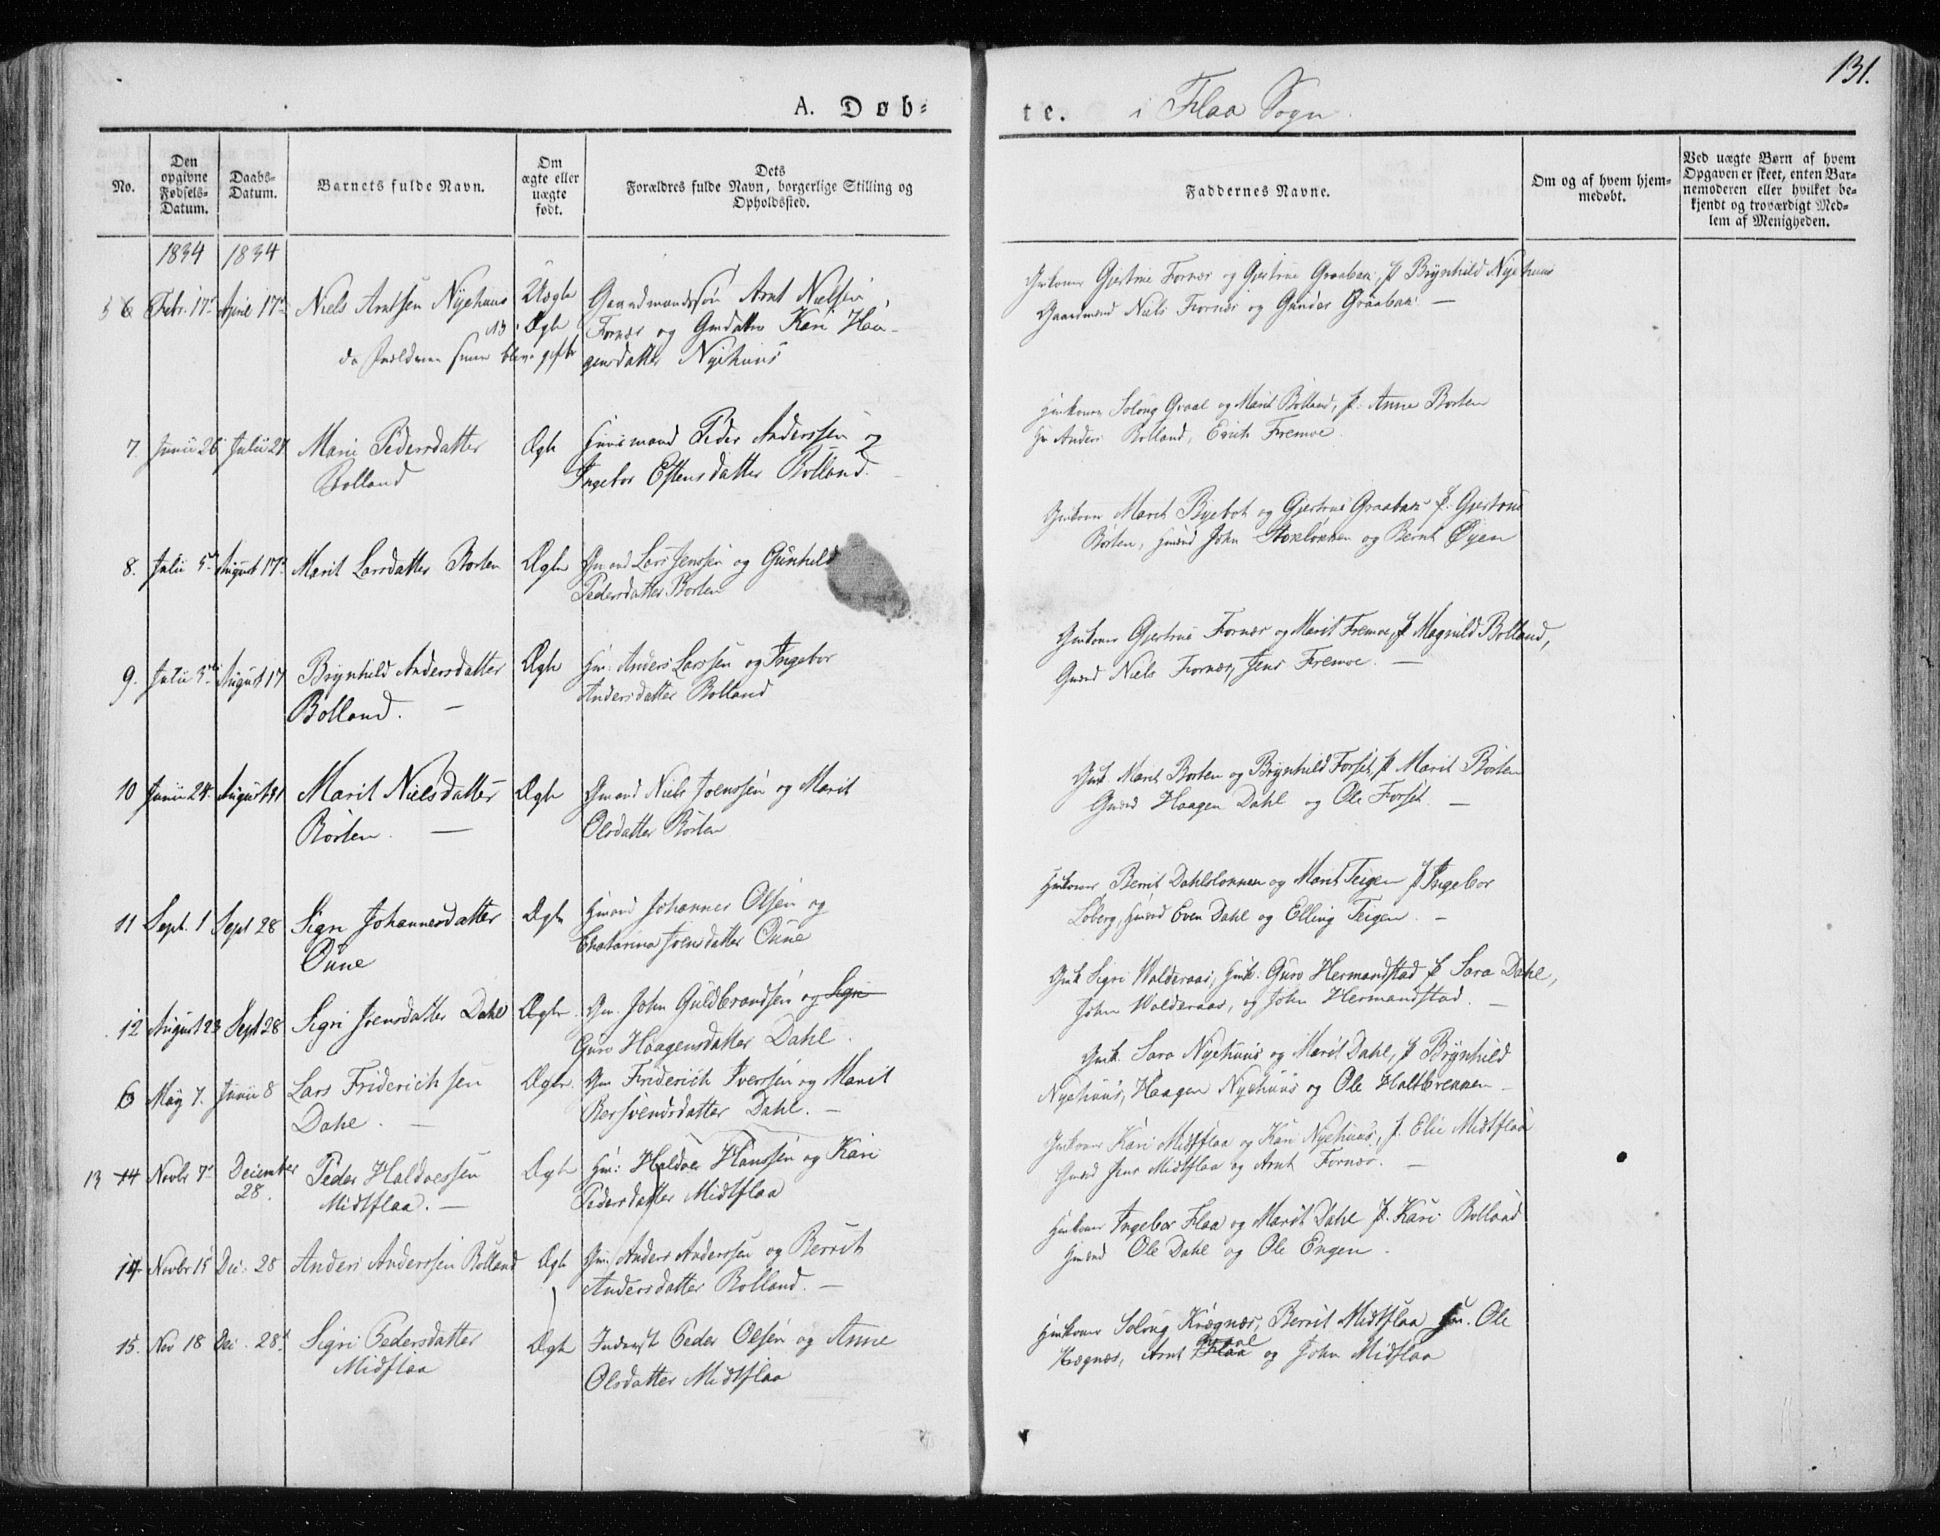 131.
A. Døb-
te. i Flaa Sogn.
No.
Den opgivne Fødsels-Datum.
Daabs-Datum.
Barnets fulde Navn.
Om ægte eller uægte født.
Dets Forældres fulde Navn, borgerlige Stilling og Opholdssted.
Faddernes Navne.
Om og af hvem hjem-medøbt.
Ved uægte Børn af hvem Opgaven er skeet, enten Bar-nemoderen eller hvilket be-kjendt og troværdigt Med-lem af Menigheden.
1834 1834
5 6 Febr. 17 April 17 Niels Arntsen Nyehuus Uægte Gaardmandssøn Arnt Nielsen
Fornæs og Gmdatter Kari Haa-
gensdatter Nyehuus
NB. Ægte
blev gifte
Gmkoner Gjertrue Fornæs og Gjertrue Graabak, P. Brynhild Nyehuus
Gaardmænd Niels Fornæs og Gunder Graabak. —
7. Junii 26 Julii 24 Marie Pedersdatter Ægte Huusmand Peder Anderssen og
Bolland Ingebor Estensdatter Bolland.
Hmkoner Solong Graal og Marit Bolland, P. Anne Borten
Hr Anders Bolland, Erich Fremoe.
8. Julii 5 August 17 Marit Larsdatter Borten Ægte Gmand Lars Jenssen og Gunhild
Pedersdatter Borten
Gmkoner Marit Byebot og Gjertrue Graabak P. Gjertrue
Borten, Hmænd John Stoxelokken og Bernt Øyen
9. Julii 5 August 17 Brynhild Andersdatter Ægte Hm: Anders Larssen og Ingebor
Bolland. — Andersdatter Bolland
Gmkoner Gjertrue Fornæs og Marit Fremoe, P Magnild Bolland,
Gmænd Niels Fornæs, Jens Fremoe. —
10 Junii 24 August 31 Marit Nielsdatter Ægte Gmand Niels Joenssen og Marit
Borten. — Olsdatter Borten
Gmk Marit Borten og Brynhild Forset, P Marit Borten
Gmænd Haagen Dahl og Ole Forset. —
11 Sept. 1 Sept 28 Sigri Johannesdatter Ægte Hmand Johannes Olsen og
Øune Chatarina Joensdatter Øune
Hmkoner Berrit Dahlslokken og Marit Teigen P Ingebor
Loberg, Hmænd Even Dahl og Elling Teigen. —
12 August 23 Sept 28 Sigri Joensdatter Dahl Ægte Gm. John Guldbrandsen og Sigri
Guro Haagensdatter Dahl.
Gmk Sigri Walderaas, Hmk. Guro Hermandstad P Sara Dahl,
John Walderaas, og John Hermandstad. —
6 May 7. Junii 8 Lars Friderichsen Ægte. Gm Friderich Iverssen og Marit
Dahl. — Bersvendsdatter Dahl. —
Gmk. Sara Nyehuus og Marit Dahl, P Brynhild
Nyehuus, Haagen Nyehuus og Ole Holtbrekken —
13 14 Novbr 7 December 28. Peder Haldoessen Ægte Hm: Haldoe Hanssen og Kari
Midtflaa. — Pedersdatter Midtflaa
Gmkoner Kari Midtflaa og Kari Nyehuus, P. Elie Midtflaa
Gmænd Jens Midtflaa og Arnt Fornæs. —
14 Novbr 15 Dec. 28 Anders Anderssen Bolland Ægte Gm. Anders Anderssen og Berrit
Andersdatter Bolland. —
Hmkoner Ingebor Flaa og Marit Dahl P. Kari Bolland
Hmænd Ole Dahl og Ole Engen.
15. Nov 18 Dec. 28 Sigri Pedersdatter Ægte Inderst Peder Olsen og Anne
Midflaa Olsdatter Midtflaa
Hmkoner Solong Krægnæs, Berrit Midtflaa Hm. Ole
Krægnæs, Arnt Flaa Graal og John Midflaa